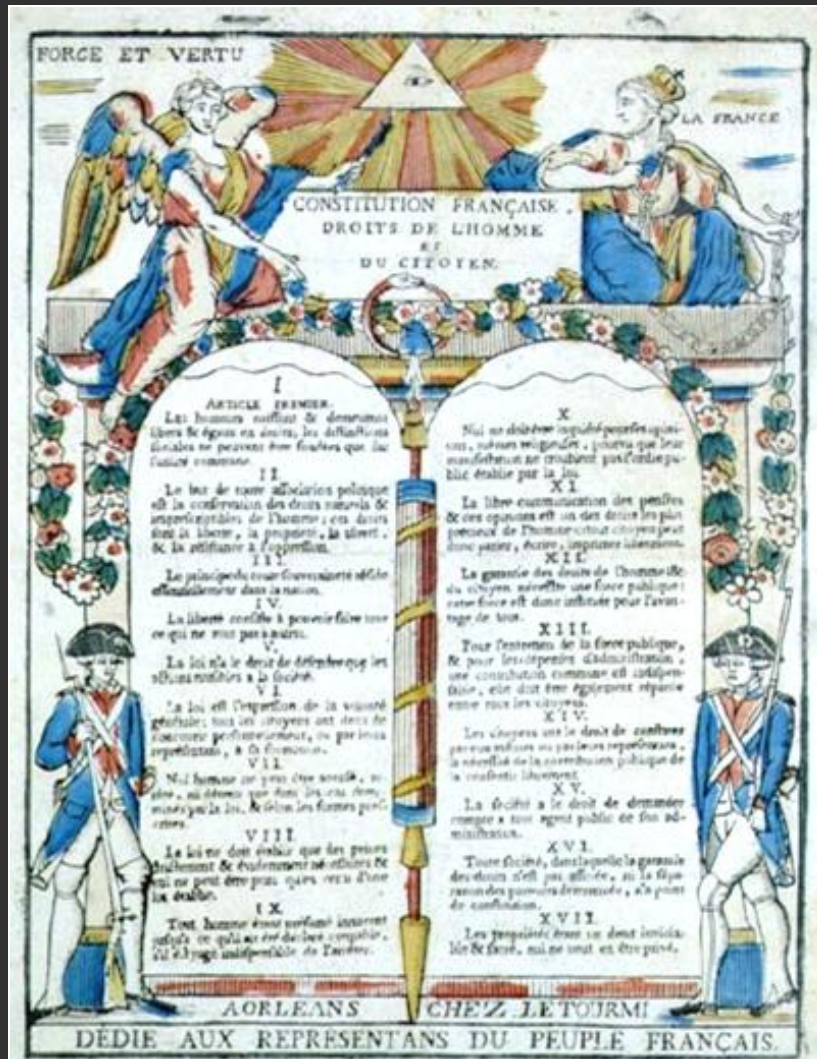 FORCE ET VERTU
LA FRANCE
CONSTITUTION FRANÇAISE.
DROITS DE L'HOMME
ET
DU CITOYEN.
I
ARTICLE PREMIER.
Les hommes naissent & demeurent
libres & égaux en droits, les distinctions
sociales ne peuvent être fondées que sur
II.
Le but de toute association politique
est la conservation des droits naturels &
imprescriptibles de l'homme; ces droits
sont la liberté, la propriété, la sureté,
& la résistance à l'oppression.
III.
Le principe de toute souveraineté réside
essentiellement dans la nation.
IV.
La liberté consiste à pouvoir faire tout
ce qui ne nuit pas à autrui.
V.
La loi n'a le droit de défendre que les
actions nuisibles à la société.
VI.
La loi est l'expression de la volonté
générale; tous les citoyens ont droit de
concourir personnellement, ou par leurs
représentans, à sa formation.
VII.
Nul homme ne peut être accusé,
ni détenu que dans les cas
minés par la loi, & selon les formes
VIII.
La loi ne doit établir que des peines
strictement & évidemment nécessaires &
nul ne peut être puni qu'en vertu d'une
loi établie.
IX
Tout homme étant présumé innocent
jusqu'à ce qu'il ait été déclaré coupable,
X
Nul ne doit être inquiété pour ses opini-
ons, mêmes religieuses, pourvu que leur
manifestation ne troublent pas l'ordre pu-
blic établie par la loi.
XI.
La libre communication des pensées
& des opinions est un des droits les plus
précieux de l'homme: tout citoyen peut
donc parler, écrire, imprimer librement.
XII.
La garantie des droits de l'homme &
du citoyen nécessite une force publique:
cette force est donc instituée pour l'avan-
tage de tous.
XIII.
Pour l'entretien de la force publique,
& pour les dépenses d'administration,
une contribution commune est indispen-
sable, elle doit être également répartie
entre tous les citoyens.
XIV.
Les citoyens ont le droit de constater
par eux mêmes ou par leurs représentans,
la nécessité de la contribution publique de
la consentir librement.
XV.
La société a le droit de demander
compte a tout agent public de son ad-
ministration.
XVI.
Toute société, dans laquelle la garantie
des droits n'est pas assurée, ni la sépa-
ration des pouvoirs déterminée, n'a point
de constitution.
XVII.
Les propriétés étant un droit inviola-
ble & sacré, nul ne peut en être privé.
A ORLEANS CHEZ LETOURMI
DÉDIE AUX REPRESENTANS DU PEUPLE FRANÇAIS.